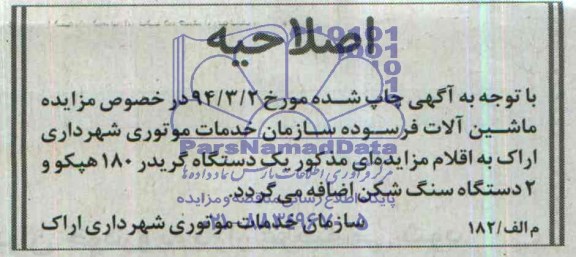 اصلاحیه
با توجه به آگهی چاپ شده مورخ ۹۴/۳/۲ در خصوص مزایده
ماشین آلات فرسوده سازمان خدمات موتوری شهرداری
اراک به اقلام مزایده‌ای مذکور یک دستگاه گریدر ۱۸۰ هپکو و
۲ دستگاه سنگ شکن اضافه می گردد.
سازمان خدمات موتوری شهرداری اراک
م الف/۱۸۲
ParsNamadData
پایگاه اطلاع رسانی مناقصه و مزایده